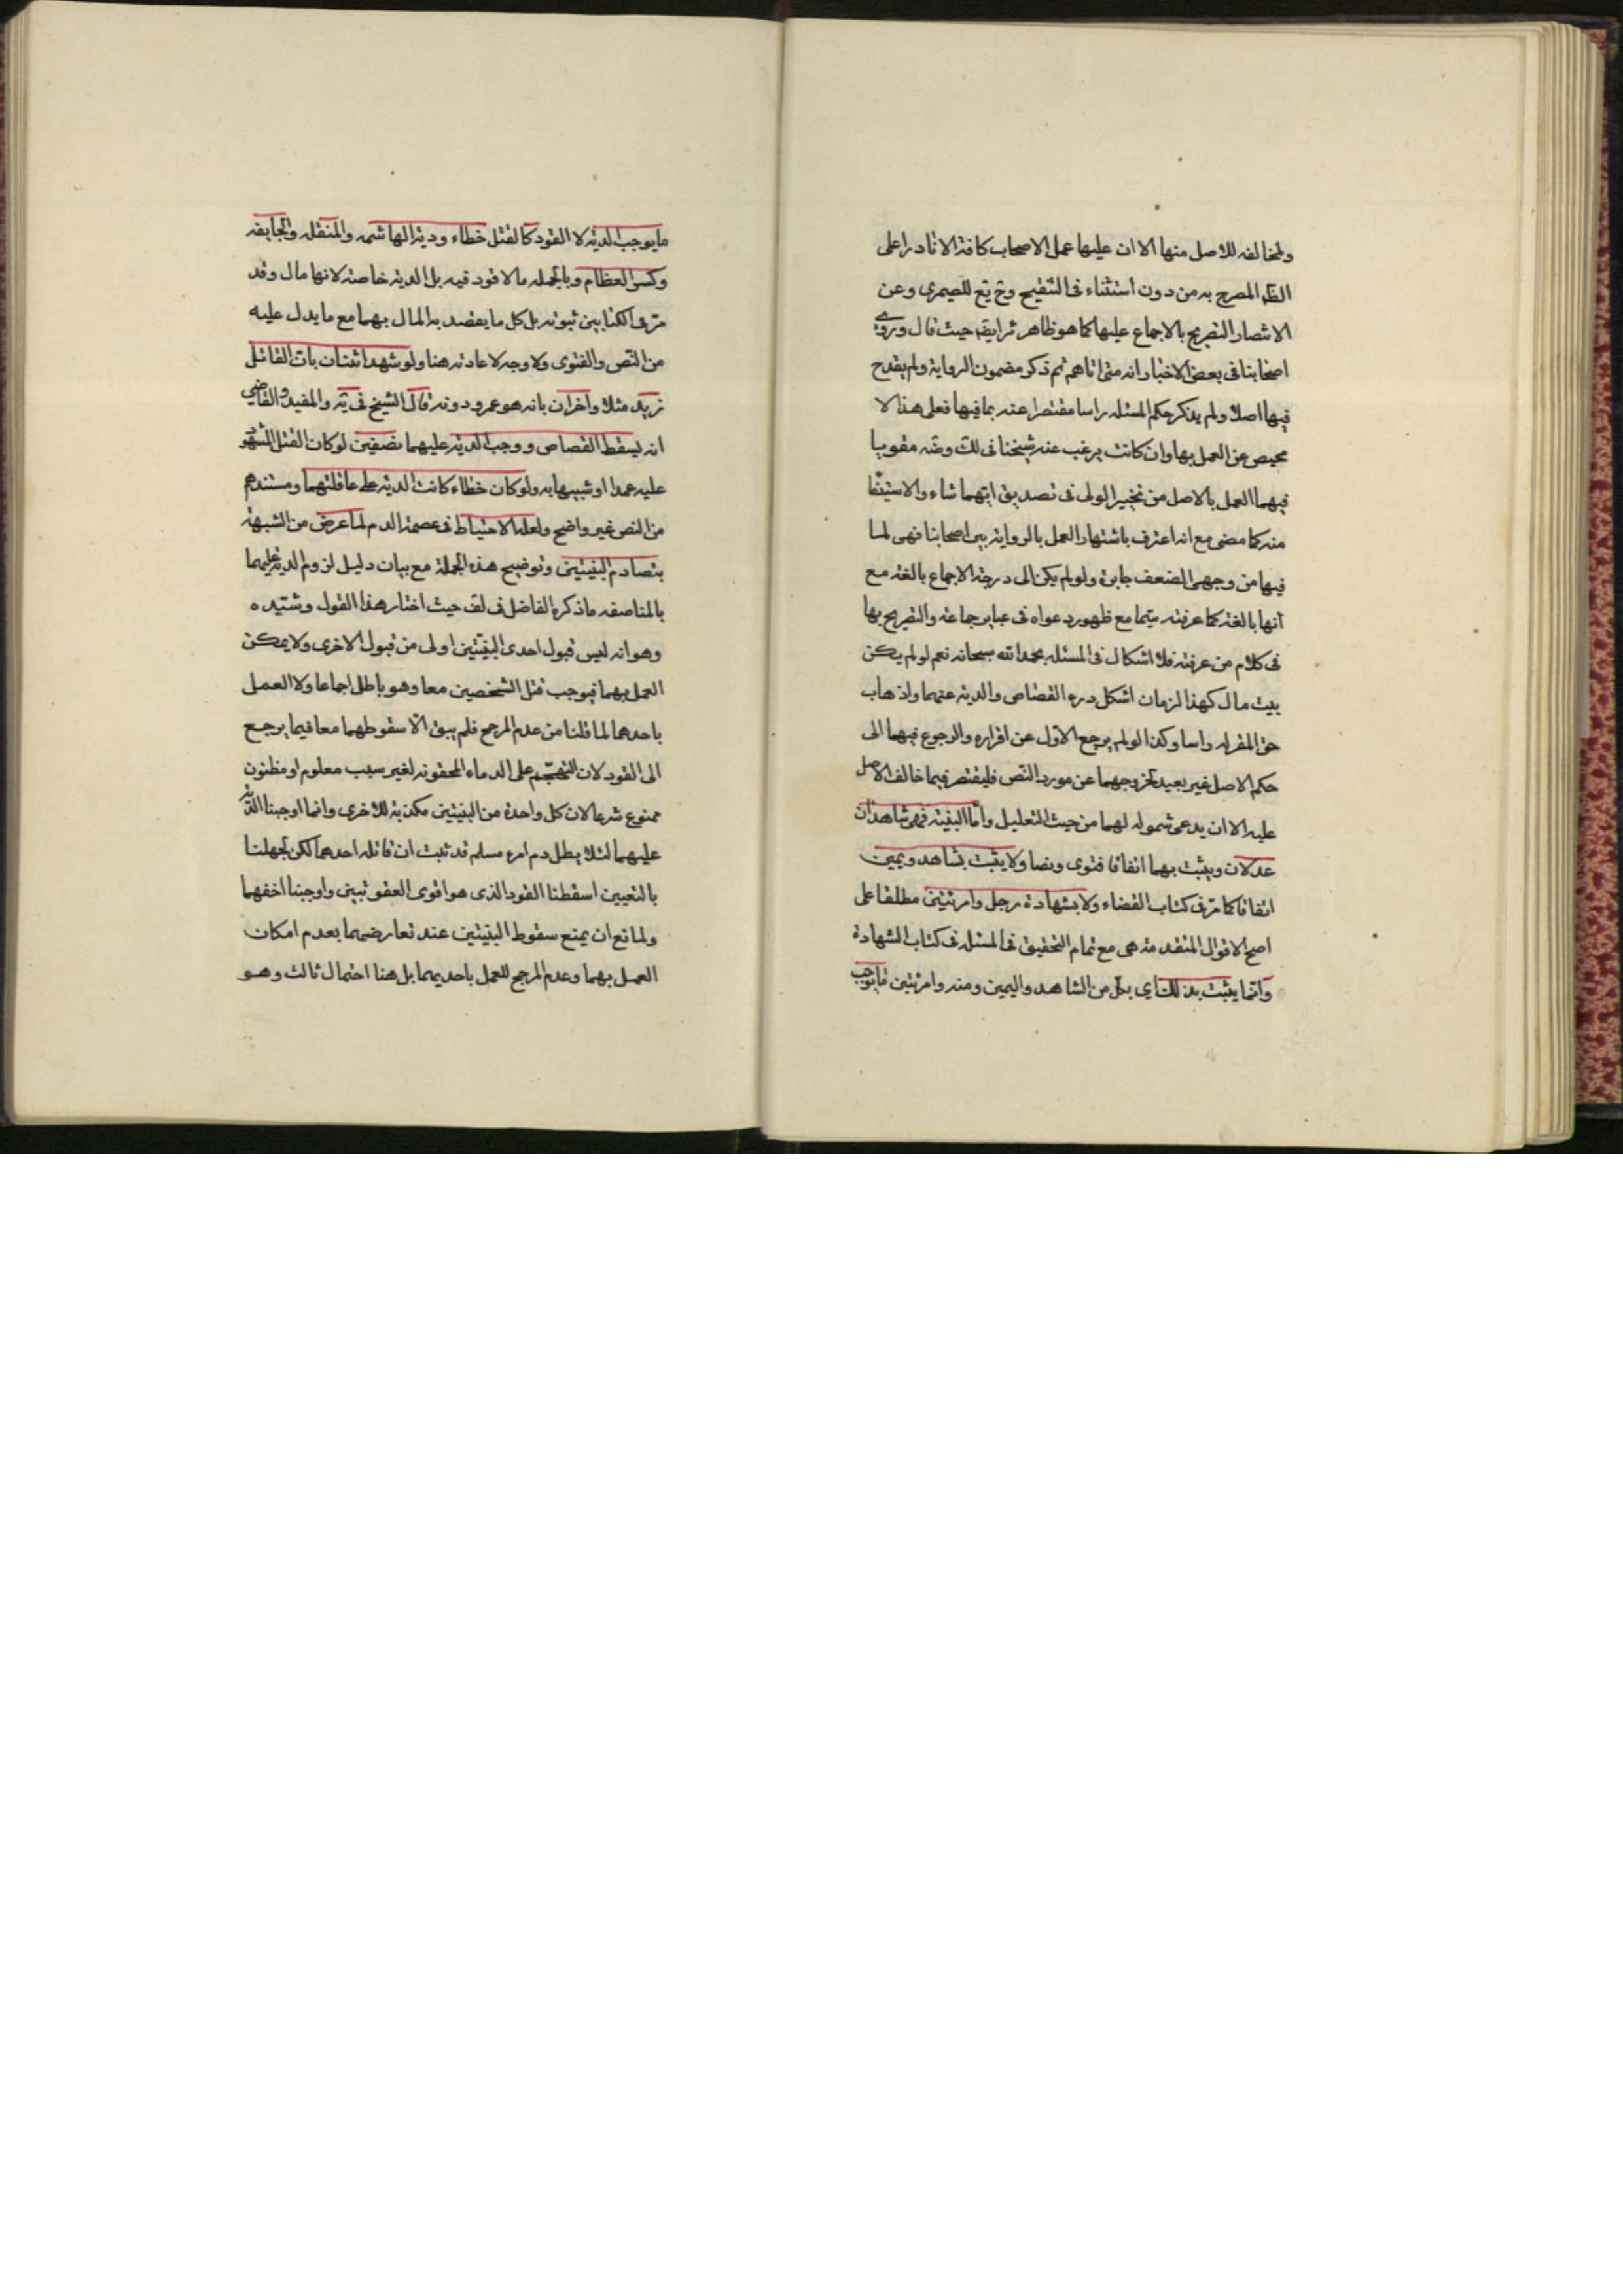 والمخالفه للاصل منها الا ان عليها عمل الاصحاب كافة الا نادرا على
الظ المصرح به من دون استثناء فى التنقيح وخ يع للصيمرى وعن
الانتصار التصريح بالاجماع عليها كما هو ظاهر ئر ايضا حيث قال وروى
اصحابنا فى بعض الاخبار انه متى اتاهم ثم ذكر مضمون الرواية ولم يقدح
فيها اصلا ولم يذكر حكم المسئله راسا مقتصرا عنه بما فيها فعلى هذا لا
محيص عن العمل بها وان كانت يرغب عنه شيخنا فى لك وضه مقويا
فيهما العمل بالاصل من تخيير الولى فى تصديق ايتهما شاء والاستيفا
منه كما مضى مع انه اعترف باشتهار العمل بالرواية بين اصحابنا فهى لما
فيها من وجهى الضعف جابرة ولو لم يكن الى درجة الاجماع بالغة مع
انها بالغة كما عرفته سيّما مع ظهور دعواه فى عباير جماعة والتصريح بها
فى كلام من عرفته فلا اشكال فى المسئله بحمد الله سبحانه نعم لو لم يكن
بيت مال كهذا الزمان اشكل درء القصاص والدية عنهما واذهاب
حق المقر له راسا وكذا لو لم يرجع الاول عن اقراره والرجوع فيهما الى
حكم الاصل غير بعيد لخروجهما عن مورد النص فليقتصر فيما خالف الاصل
عليه الا ان يدعى شموله لهما من حيث التعليل وامّا البيّنه فهى شاهدان
عدلان ويثبت بهما اتفاقا فتوى ونصا ولا يثبت بشاهد ويمين
اتفاقا كما مرّ فى كتاب القضاء ولا بشهادة رجل وامرئتين مطلقا على
اصح الاقوال المتقدمة هى مع تمام التحقيق فى المسئله فى كتاب الشهادة
وانما يثبت بذلك اى بكل من الشاهد واليمين ومنه وامرئتين مايوجب
مايوجب الدية لا القود كالقتل خطاء ودية الهاشمه والمنقله والجايفه
وكسر العظام وبالجمله ما لا قود فيه بل الدية خاصة لانها مال وقد
مرّ فى الكتابين ثبوته بل كل ما يقصد به المال بهما مع ما يدل عليه
من النّص والفتوى ولا وجه لاعادته هنا ولو شهد اثنان بان القاتل
زيد مثلا واخران بانه هو عمرو دونه قال الشيخ فى يّه والمفيد والقاضى
انه يسقط القصاص ووجب الدية عليهما نصفين لو كان القتل المشهود
عليه عمدا او شبيها به ولو كان خطاء كانت الدية على عاقلتهما ومستندهم
من النص غير واضح ولعله الاحتياط فى عصمة الدم لما عرض من الشبهة
بتصادم البنيّتين وتوضيح هذه الجملة مع بيان دليل لزوم الدية عليهما
بالمناصفه ما ذكره الفاضل فى لف حيث اختار هذا القول وشيّده
وهو انه ليس قبول احدى البنيّتين اولى من قبول الاخرى ولا يمكن
العمل بهما فيوجب قتل الشخصين معا وهو باطل اجماعا ولا العمل
باحدهما لما قلنا من عدم المرجح فلم يبق الّا سقوطهما معا فيما يرجع
الى القود لان التهجّم على الدماء المحقونه لغير سبب معلوم او مظنون
ممنوع شرعا لان كل واحدة من البنيتين مكذبة للاخرى وانما اوجبنا الدّية
عليهما لئلا يطل دم امرء مسلم قد ثبت ان قاتله احدهما لكن لجهلنا
بالتعيين اسقطنا القود الذى هو اقوى العقوبتين واوجبنا اخفهما
ولمانع ان يمنع سقوط البنيّتين عند تعارضهما بعدم امكان
العمل بهما وعدم المرجح للعمل باحديهما بل هنا احتمال ثالث وهو